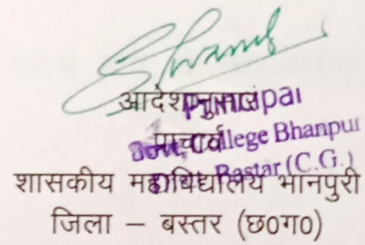 आदेशानुसार
Principal
प्राचार्य
Govt. College Bhanpuri
Distt. Bastar (C.G.)
शासकीय महाविद्यालय भानपुरी
जिला – बस्तर (छ०ग०)